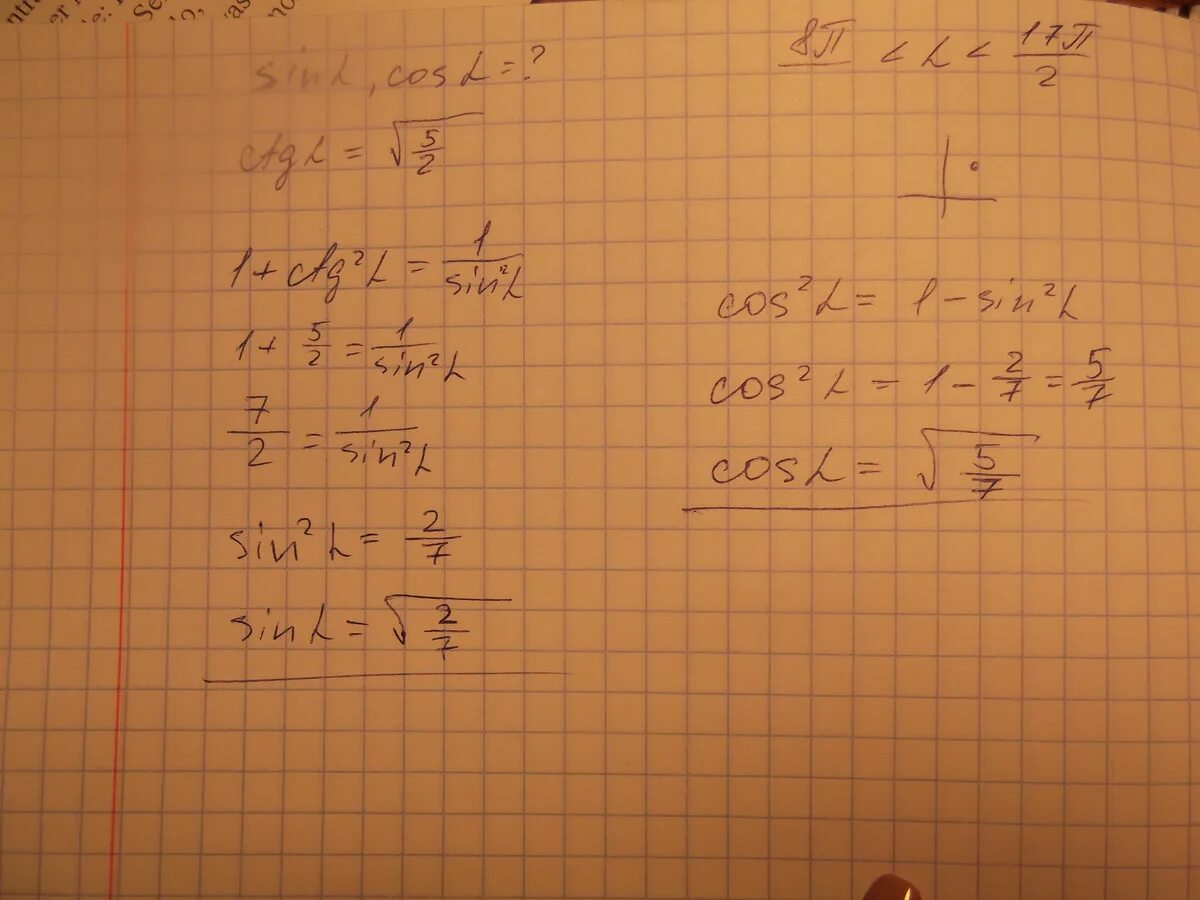 sin α, cos α = ?
ctg α = √(5/2)
1 + ctg² α = 1/sin² α
1 + 5/2 = 1/sin² α
7/2 = 1/sin² α
sin² α = 2/7
sin α = √(2/7)
8π < α < 17π/2
cos² α = 1 - sin² α
cos² α = 1 - 2/7 = 5/7
cos α = √(5/7)